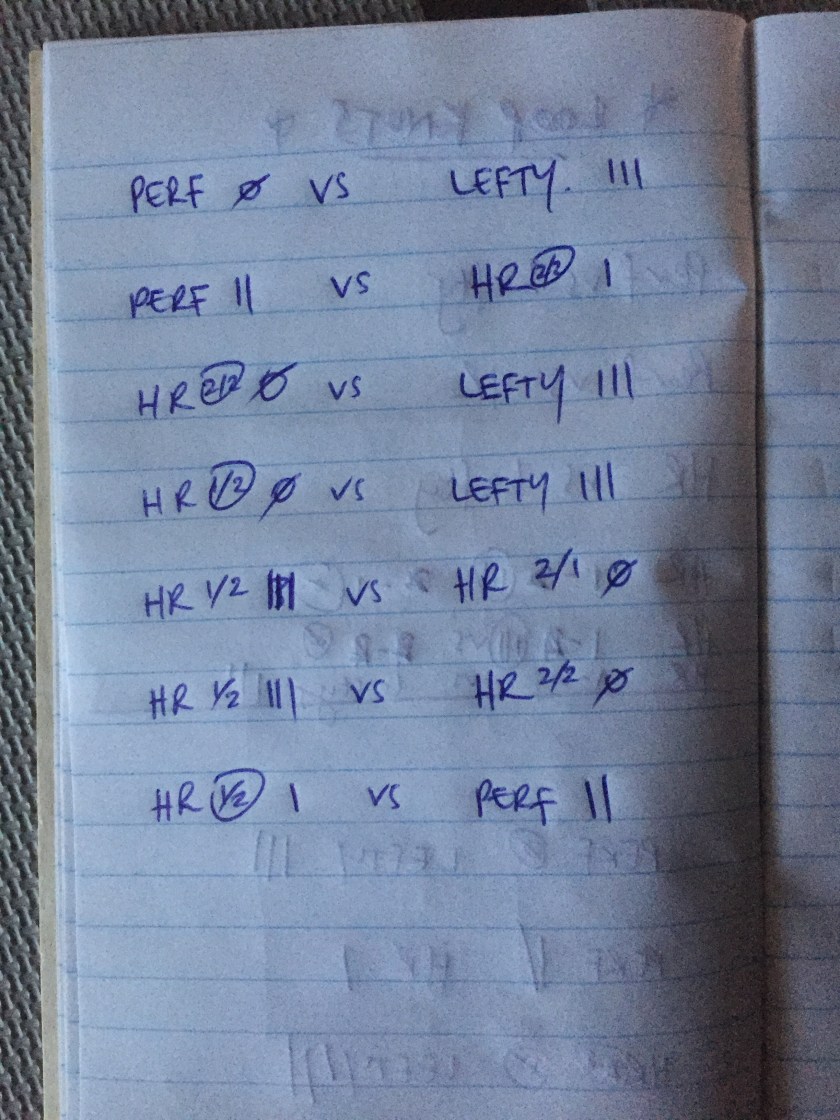 PERF Ø VS LEFTY. III
PERF II VS HR 2/2 I
HR 2/2 Ø VS LEFTY III
HR 1/2 Ø VS LEFTY III
HR 1/2 III VS HR 2/1 Ø
HR 1/2 III VS HR 2/2 Ø
HR 1/2 I VS PERF II